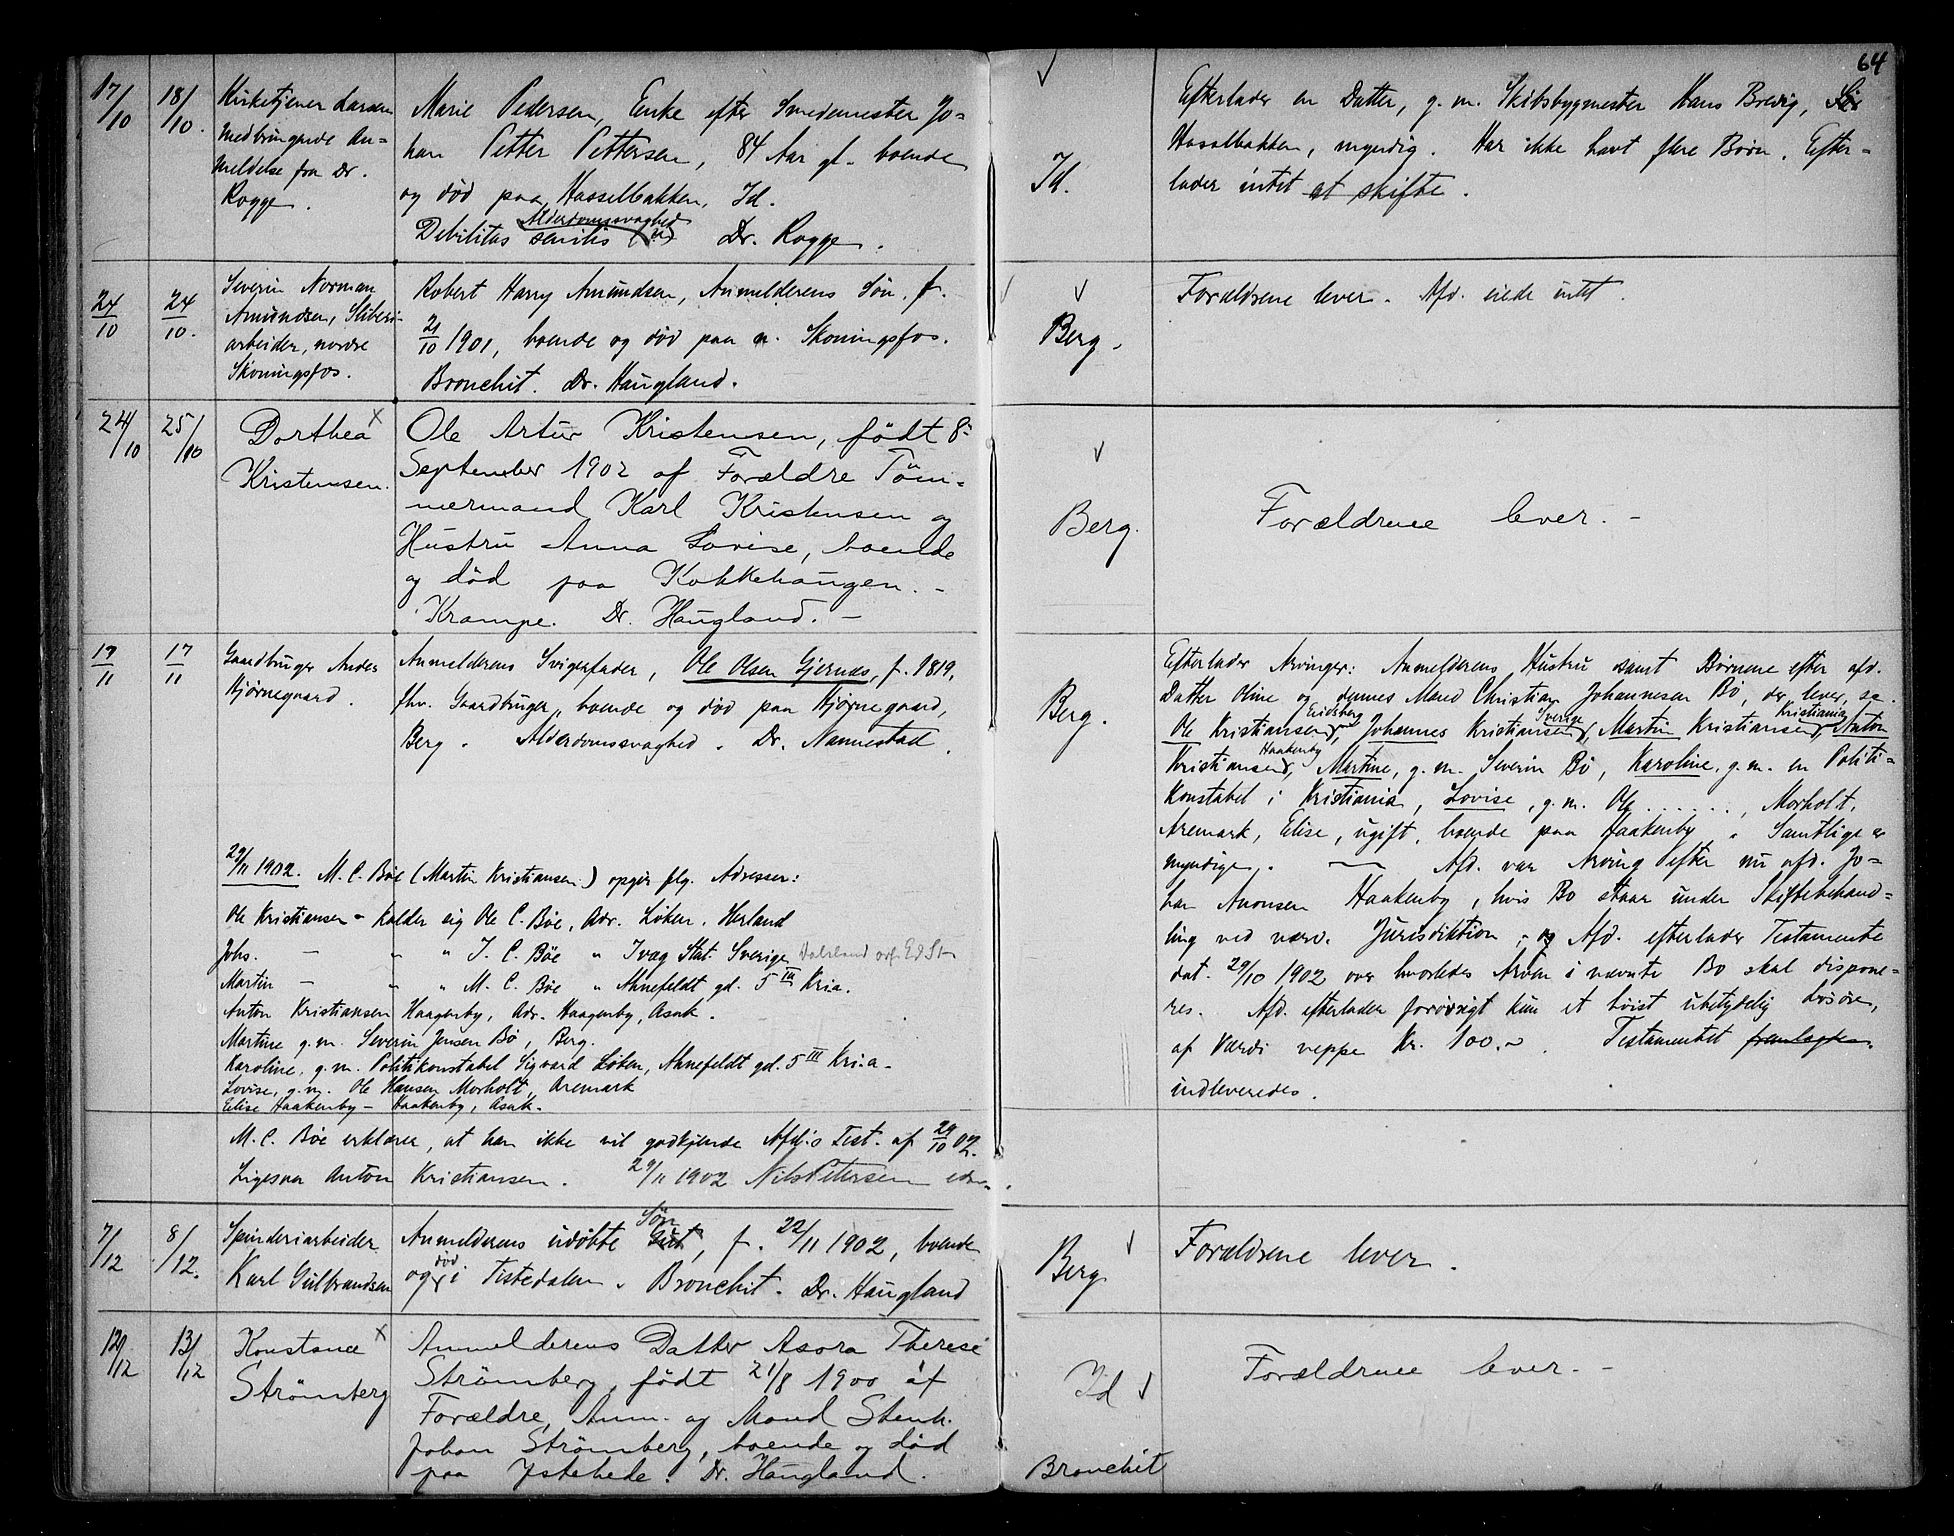 64
17/10 18/10. Kirketjener Larsen
medbringende An-
meldelse fra Dr.
Rogge.
Marie Pedersen, Enke efter Smedemester Jo-
han Petter Pettersen, 84 Aar gl. boende
og død paa Hasselbakken, Id.
Alderdomssvaghed
Debilitas senilis Dr. Rogge.
Id.
Efterlader en Datter, g. m. Skibsbygmester Hans Brevig,
Hasselbakken, myndig. Har ikke havt flere Børn. Efter-
lader intet at skifte.
24/10 24/10. Severin Norman
Amundsen, Sliberi-
arbeider, nordre
Skoningsfos.
Robert Harry Amundsen, Anmelderens Søn, f.
21/10 1901, boende og død paa n. Skoningsfos.
Bronchit. Dr. Haugland.
Berg.
Forældrene lever. Afd. eiede intet.
24/10 25/10 Dorthea x
Kristensen.
Ole Artur Kristensen, født 8-
September 1902 af Forældre Töm-
mermand Karl Kristensen og
Hustru Anna Lovise, boende
og död paa Kokkehaugen. -
Krampe. Dr. Haugland. -
Berg.
Forældrene lever. -
17/11 17/11 Gaardbruger Anders
Hjørnegaard.
Anmelderens Svigerfader, Ole Olsen Gjernæs, f. 1819,
fhv. Gaardbruger, boende og død paa Hjørnegaard,
Berg. Alderdomssvaghed. Dr. Nannestad.
Berg.
Efterlader Arvinger: Anmelderens Hustru samt Børnene efter afd.
Datter Oline og dennes Mand Christian Johannesen Bø, der lever, sa.
Eidsberg Sverige Kristiania
Ole Kristiansen, Johannes Kristiansen, Martin Kristiansen, Anton
Haakenby
Kristiansen, Martine, g. m. Severin Bø, Karoline, g. m. en Politi-
konstabel i Kristiania, Lovise, g. m. Ole . . . . . ., Morholt,
Aremark, Elise, ugift, boende paa Haakenby. Samtlige er
myndige. — Afd. var Arving efter nu afd. Jo-
han Aronsen Haakenby, hvis Bo staar under Skiftebehand-
ling ved værv. Jurisdiktion, og Afd. efterlader Testamente
dat. 29/10 1902 over hvorledes Arven i nævnte Bo skal dispone-
res. Afd. efterlader forøvrigt kun et höist ubetydelig Løsøre,
af Værdi neppe Kr. 100. Testamentet fremlagdes.
indleveredes.
29/11 1902. M. C. Bøe (Martin Kristiansen) opgir flg. Adresser:
Ole Kristiansen - kalder sig Ole C. Bøe, Adr. Løken, Herland
Johs. — " " J. C. Bøe " Ivag Stat. Sverige Dalsland
Martin — " " M. C. Bøe " Ahnefeldt gd. 5 III Kria.
Anton Kristiansen Haagenby, Adr. Haagenby, Asak.
Martine g. m. Severin Jensen Bø, Berg.
Karoline, g. m. Politikonstabel Sigvard Løken, Ahnefeldt gd. 5 III Kria.
Lovise, g. m. Ole Hansen Morholt, Aremark
Elise Haakenby - Haakenby, Asak.
M. C. Bøe erklærer, at han ikke vil godkjende Afd.s Test. af 29/10 02.
Ligesaa Anton Kristiansen. 29/11 1902 Nils Pettersen
7/12 8/12. Spinderiarbeider
Karl Gulbrandsen
Søn
Anmelderens udøbte Gut, f. 22/11 1902, boende
og død i Tistedalen. Bronchit. Dr. Haugland
Berg
Forældrene lever.
12/12 13/12 Konstance x
Strömberg
Anmelderens Datter Asora Therese
Strömberg, födt 21/8 1900 af
Forældre, Anm. og Mand Stenh.
Johan Strömberg, boende og död
paa Ystehede. Dr. Haugland.
Id
Bronchit
Forældrene lever. -